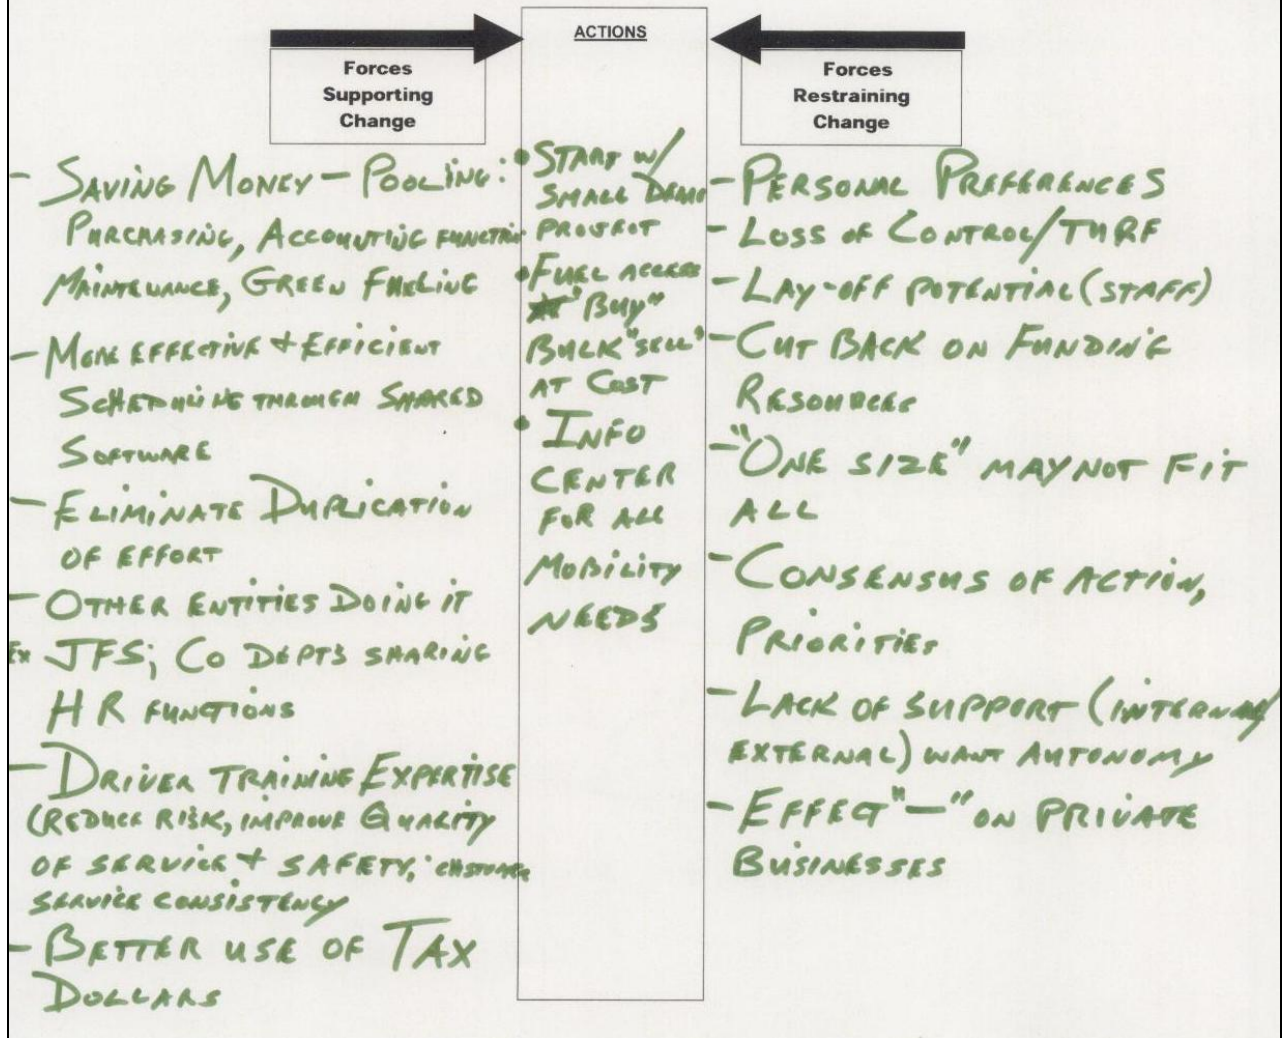 ACTIONS
Forces
Supporting
Change
Forces
Restraining
Change
- SAVING MONEY - POOLING:
PURCHASING, ACCOUNTING FUNCTION
MAINTENANCE, GREEN FUELING
- MORE EFFECTIVE + EFFICIENT
SCHEDULING THROUGH SHARED
SOFTWARE
- ELIMINATE DUPLICATION
OF EFFORT
- OTHER ENTITIES DOING IT
Ex JFS; CO DEPT'S SHARING
HR FUNCTIONS
- DRIVER TRAINING EXPERTISE
(REDUCE RISK, IMPROVE QUALITY
OF SERVICE + SAFETY; CUSTOMER
SERVICE CONSISTENCY
- BETTER USE OF TAX
DOLLARS
• START W/
SMALL DEMO
PROJECT
• FUEL ACCESS
"BUY"
BULK "SELL"
AT COST
• INFO
CENTER
FOR ALL
MOBILITY
NEEDS
- PERSONAL PREFERENCES
- LOSS OF CONTROL/TURF
- LAY-OFF POTENTIAL (STAFF)
- CUT BACK ON FUNDING
RESOURCES
- "ONE SIZE" MAY NOT FIT
ALL
- CONSENSUS OF ACTION,
PRIORITIES
- LACK OF SUPPORT (INTERNAL/
EXTERNAL) WANT AUTONOMY
- EFFECT "-" ON PRIVATE
BUSINESSES